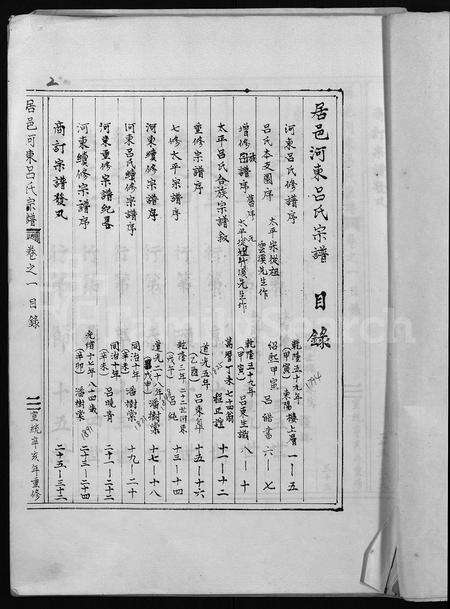 居邑河東呂氏宗譜 目錄
河東呂氏修譜序 乾隆五十九年(甲寅) 東陽樓上層 一—五
呂氏本支圖序 太平宗從祖雲溪先生作 紹熙甲寅 呂皓書 六—七
增修宗譜舊序 乾隆五十九年(甲寅) 呂東生識 八—十
太平呂氏合族宗譜敘 萬曆丁未七十四翁 程正誼 十一—十二
重修宗譜序 道光五年 呂東皐 十五—十六
七修太平宗譜序 乾隆三年(戊午) 呂純 十三—十四
河東續修宗譜序 道光二十八年(戊申) 潘樹棠 十七—十八
河東呂氏續修宗譜序 同治十年(辛未) 潘樹棠 十九—二十
河東重修宗譜紀畧 同治十年(辛未) 呂曉青 二十一—二十二
河東續修宗譜序 光緒十七年(辛卯) 八十四歲 潘樹棠 1891 二十三—二十四
商訂宗譜發凡 二十五—三十二
居邑河東呂氏宗譜 卷之一 目錄 宣統辛亥年重修